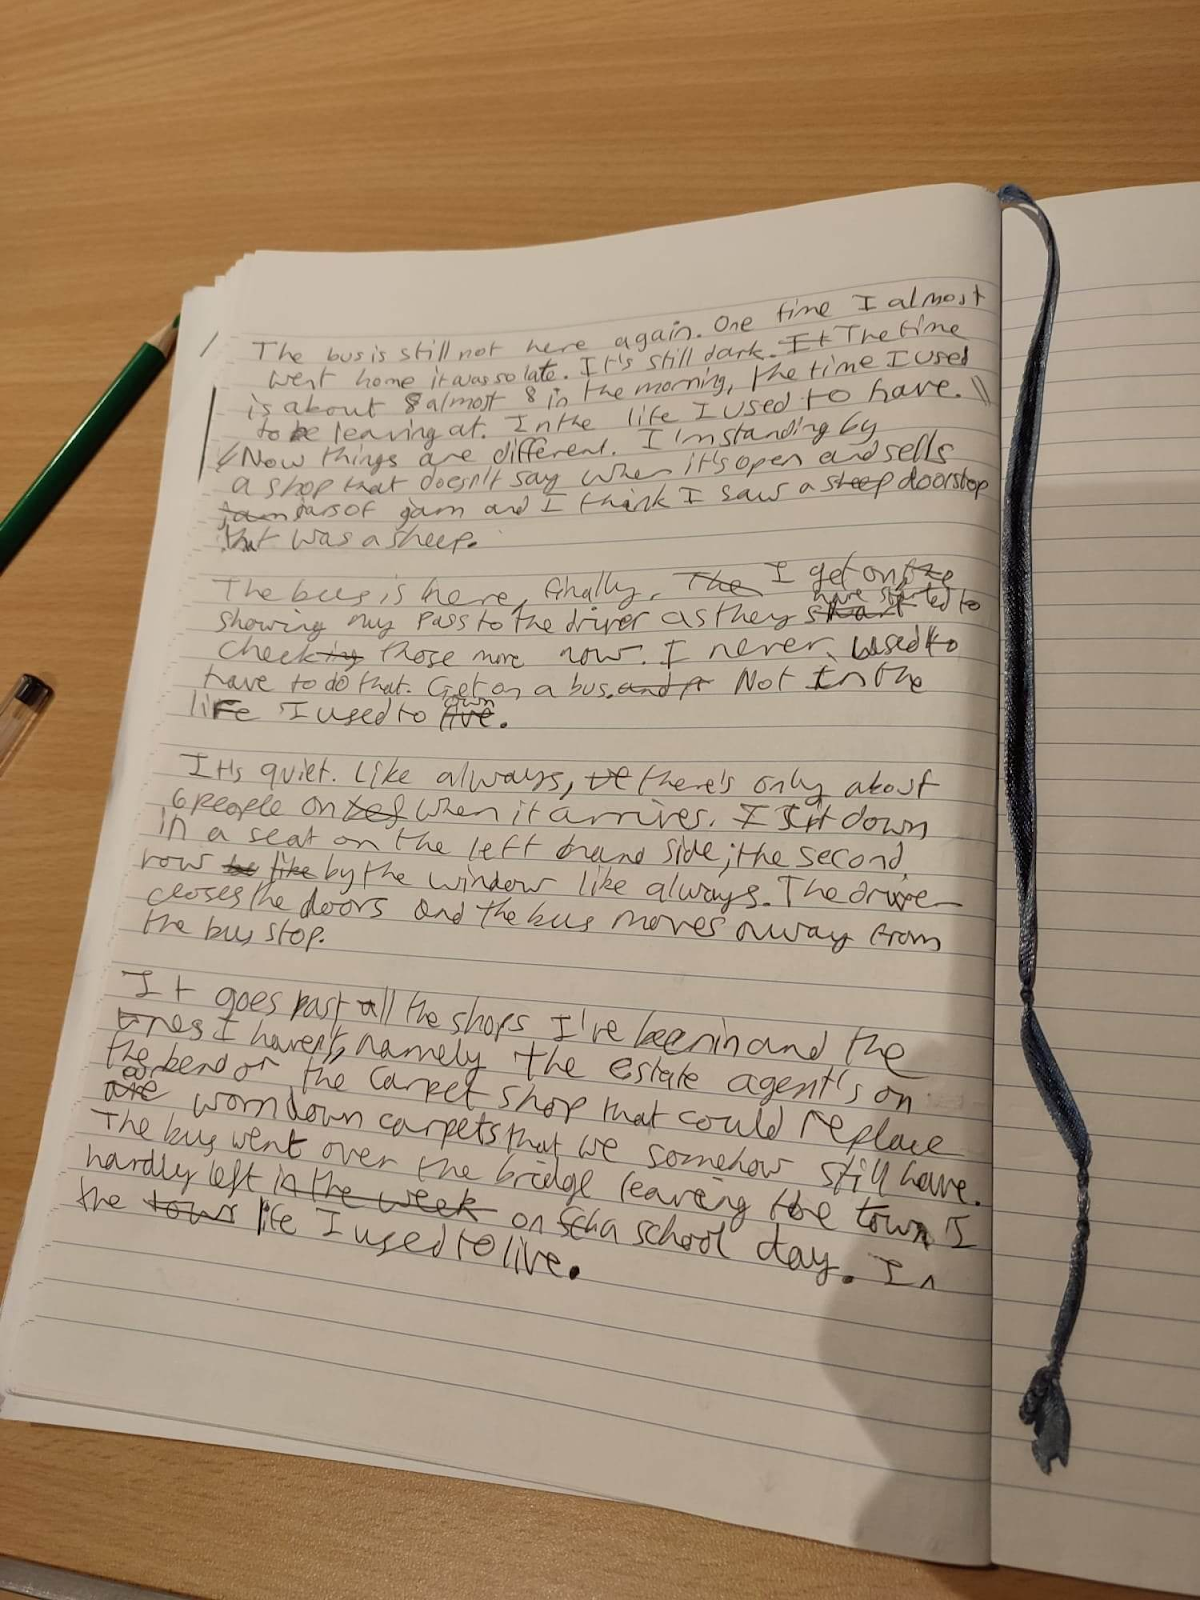 The bus is still not here again. One time I almost
went home it was so late. It's still dark. It The time
is about 8 almost 8 in the morning, the time I used
to be leaving at. In the life I used to have. \\
Now things are different. I I'm standing by
a shop that doesn't say when it's open and sells
jam jars of jam and I think I saw a sheep doorstop
that was a sheep.
The bus is here, finally. The I get on, the
showing my pass to the driver as they start have started to
checking those more now. I never used to
have to do that. Get on a bus. and it Not In the
life I used to live own.
It's quiet. Like always, there's only about
6 people on when it arrives. I sit down
in a seat on the left hand side; the second
row be like by the window like always. The driver
closes the doors and the bus moves away from
the bus stop.
It goes past all the shops I've been in and the
ones I haven't, namely the estate agent's on
the bend or the carpet shop that could replace
are our worn down carpets that we somehow still have.
The bus went over the bridge leaving the town I
hardly left in the week on a school day. In
the town life I used to live.